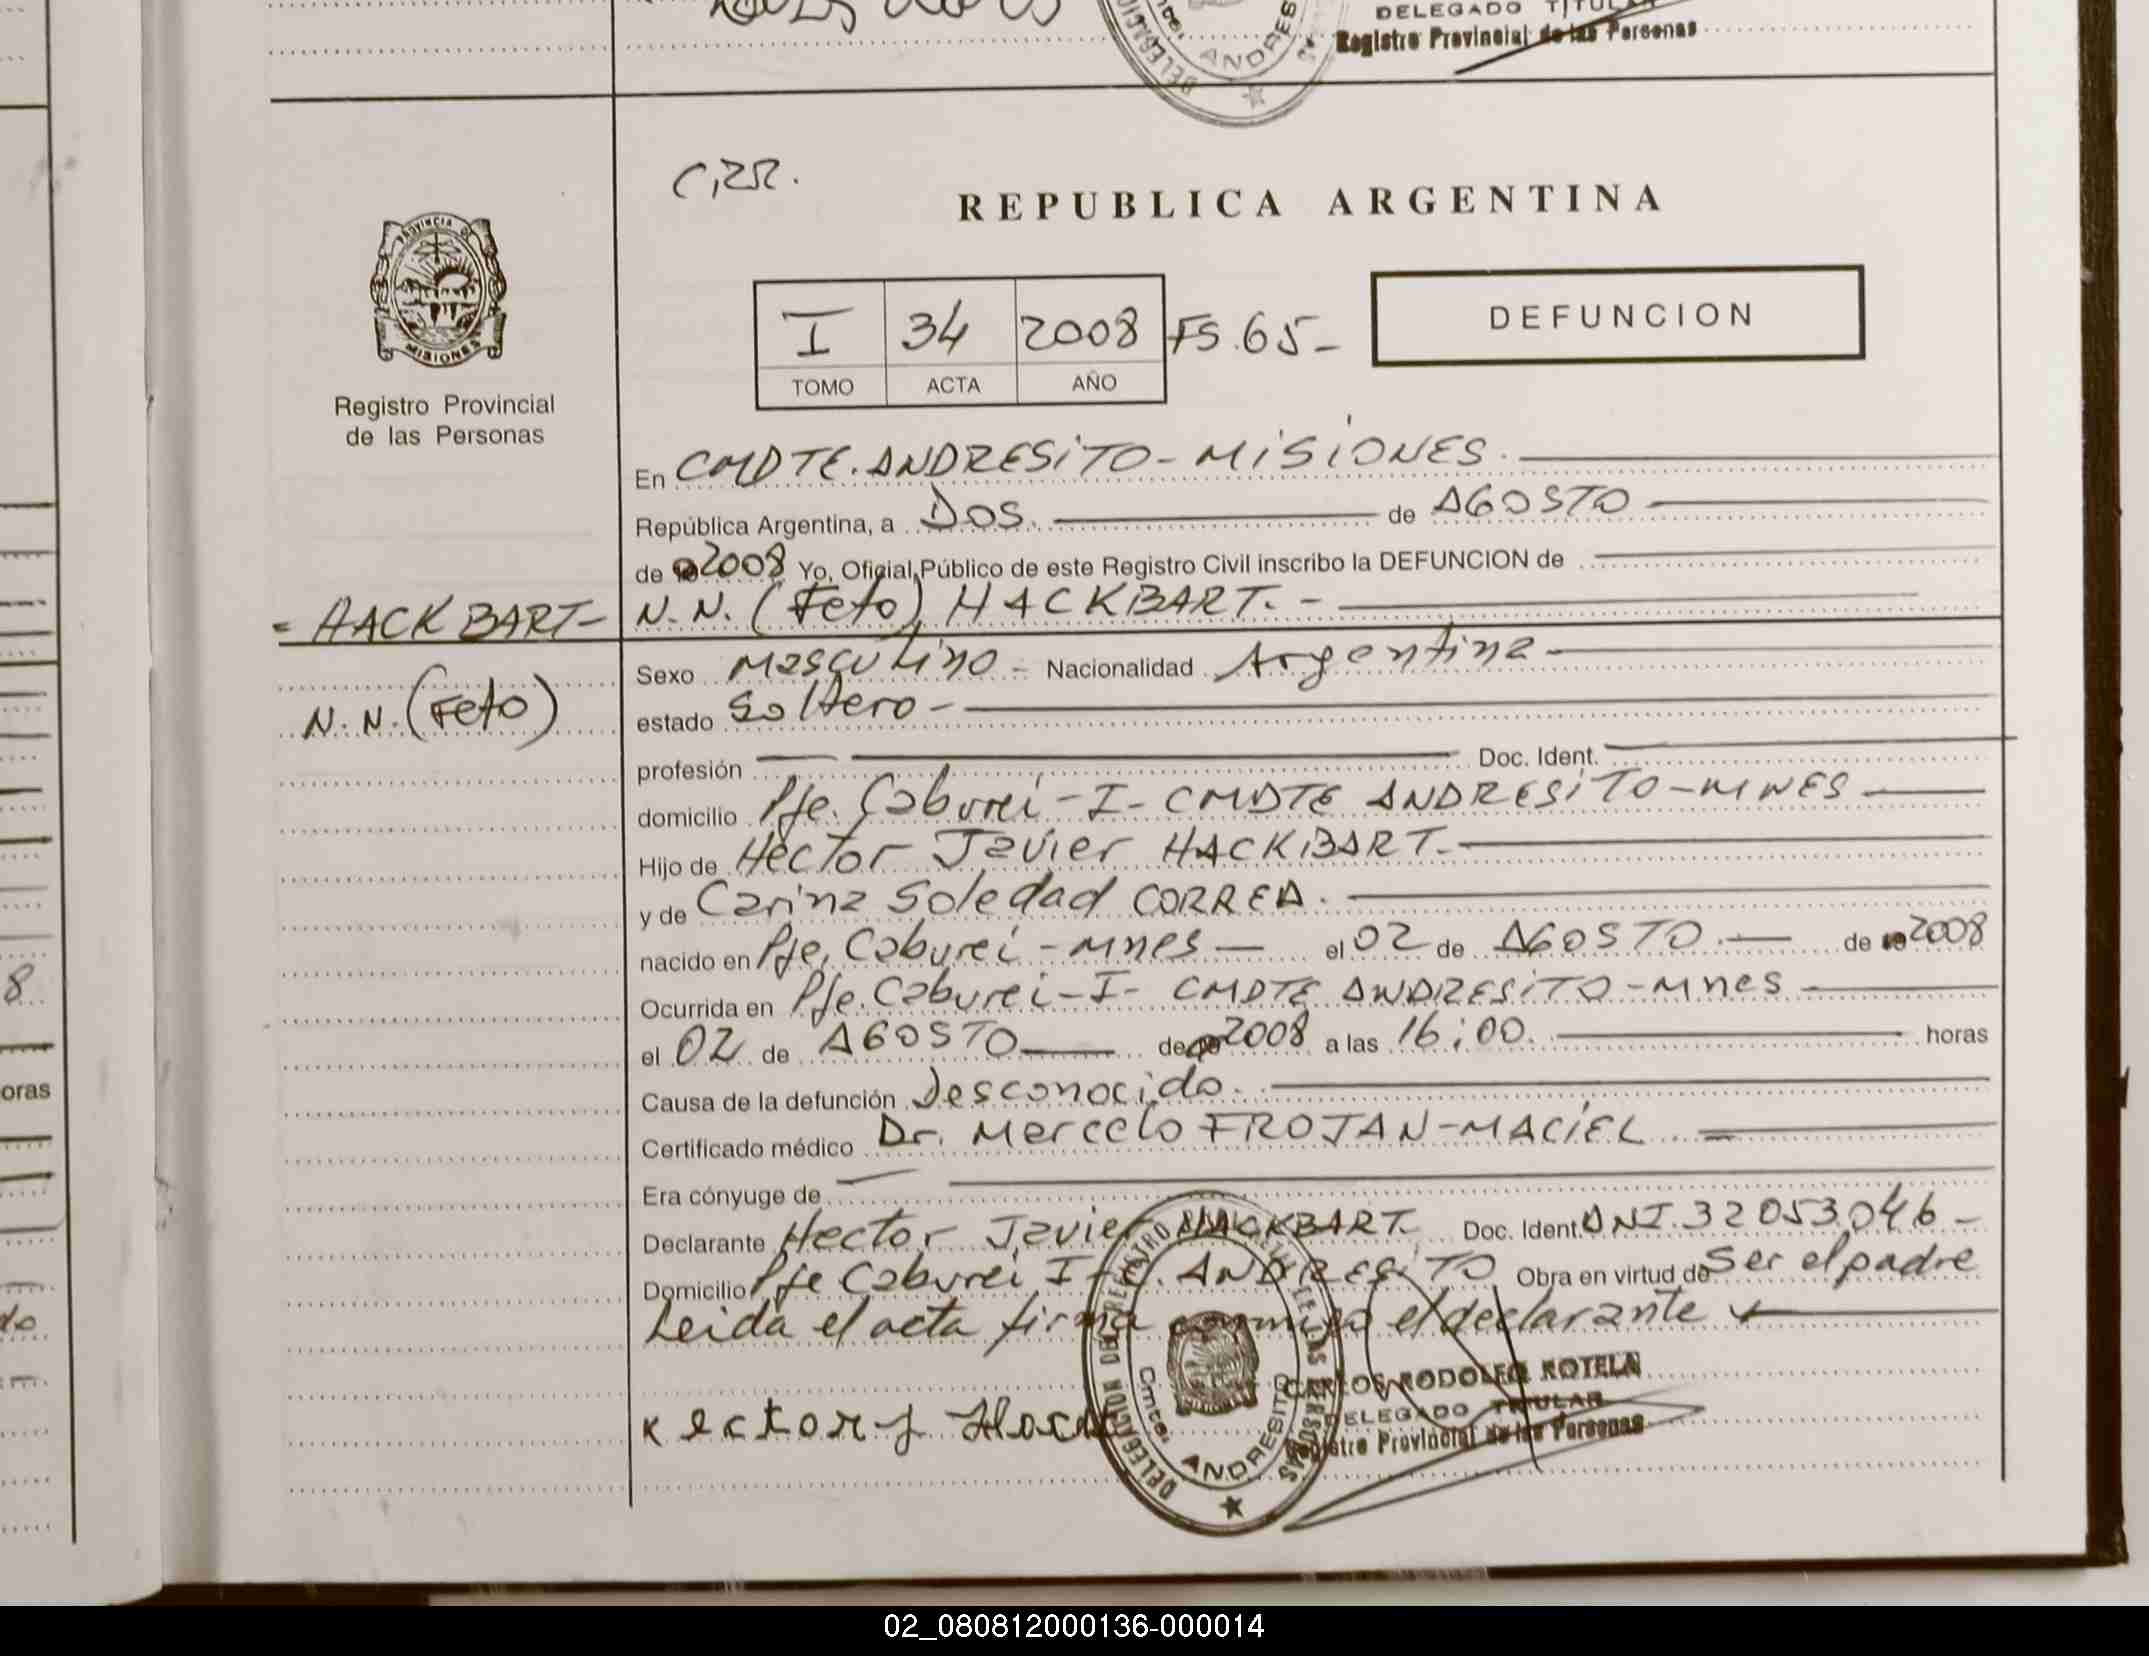 DELEGADO TITULAR
Registro Provincial de las Personas
DELEGACION
ANDRES
REPUBLICA ARGENTINA
PROVINCIA DE
MISIONES
Registro Provincial
de las Personas
I 34 2008 FS.65-
TOMO ACTA AÑO
DEFUNCION
En CMDTE. ANDRESITO - MISIONES.
República Argentina, a Dos. de AGOSTO
de 2008 Yo, Oficial Público de este Registro Civil inscribo la DEFUNCION de
- HACKBART- N.N. (Feto) HACKBART. -
Sexo Masculino - Nacionalidad Argentina -
N.N. (Feto)
estado Soltero -
profesión Doc. Ident.
domicilio Pje. Caburei - I - CMDTE ANDRESITO - MNES
Hijo de Hector Javier HACKBART.-
y de Carina Soledad CORREA.
nacido en Pje. Caburei - Mnes - el 02 de AGOSTO. de 2008
Ocurrida en Pje. Caburei - I - CMDTE ANDRESITO - Mnes
el 02 de AGOSTO de 2008 a las 16:00. horas
8
oras
Causa de la defunción Desconocido.
Certificado médico Dr. Marcelo FROJAN-MACIEL
Era cónyuge de
Declarante Hector Javier HACKBART. Doc. Ident. DNI. 32053046 -
Domicilio Pje Caburei I - C. ANDRESITO Obra en virtud de Ser el padre
do
Leida el acta firma conmigo el declarante
CARLOS RODOLFO ROTELA
DELEGADO TITULAR
Registro Provincial de las Personas
DELEGACION DEL REGISTRO PROVINCIAL DE LAS PERSONAS
Cmte. ANDRESITO
02_080812000136-000014